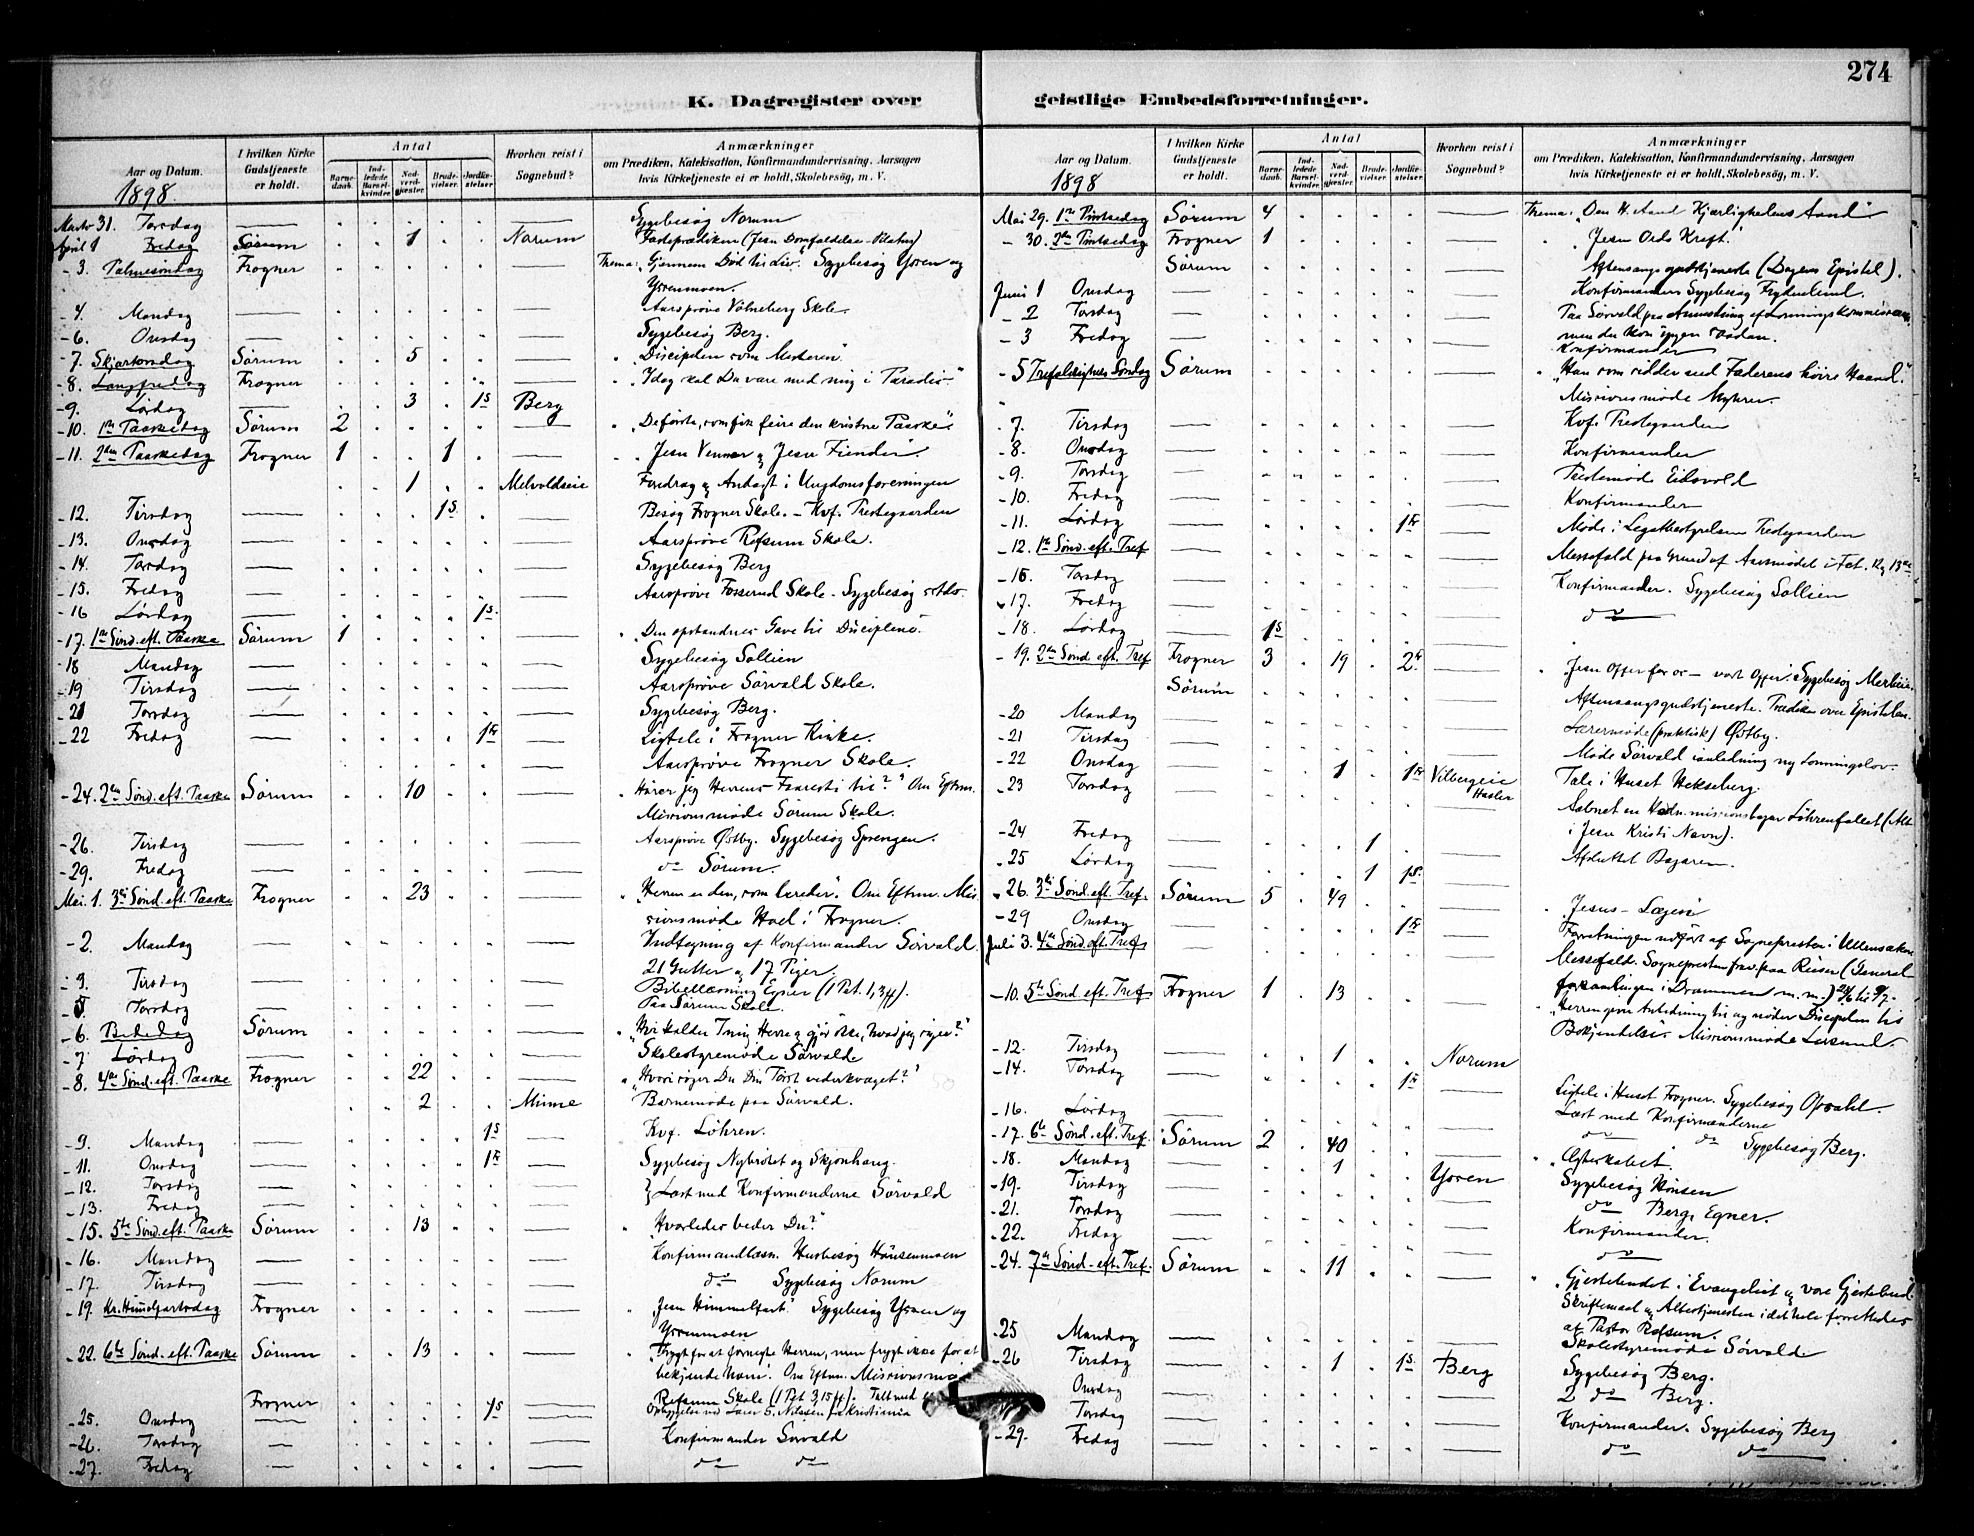 274
K. Dagregister over
Aar og Datum.
I hvilken Kirke Gudstjeneste er holdt.
Antal
Barnedaab.
Indledede Barselkvinder
Nadverdgjester
Brudevielser.
Jordfæstelser
Hvorhen reist i Sognebud?
Anmærkninger
om Prædiken, Katekisation, Konfirmandundervisning, Aarsagen
hvis Kirketjeneste ei er holdt, Skolebesøg, m. V.
1898
Marts 31. Torsdag — Sygebesøg Norum
April 1 Fredag Sørum 1 Norum Fasteprædiken (Jesu Domfældelse. Pilatus)
- 3. Palmesøndag Frogner — Thema: "Gjennem Død til Liv". Sygebesøg Yssen og
- 4. Mandag — Aarsprøve Vølneberg Skole.
- 6. Onsdag — Sygebesøg Berg.
- 7. Skjærtorsdag Sørum 5 — "Disciplen som Mesteren"
- 8. Langfredag Frogner — "Idag skal Du være med mig i Paradis"
- 9. Lørdag — 3 1 S Berg
- 10. 1ste Paaskedag Sørum 2 — "De første, som fik feire den kristne Paaske"
- 11. 2den Paaskedag Frogner 1 1 — "Jesu Venner og Jesu Fiender".
1 Foredrag og Andagt i Ungdomsforeningen
- 12. Tirsdag — 1 S. — Besøg Frogner Skole. - Kvf. Prestegaarden
- 13. Onsdag — Aarsprøve Refsum Skole.
- 14. Torsdag — Sygebesøg Berg
- 15. Fredag — Aarsprøve Fosserud Skole - Sygebesøg
- 16 Lørdag — 1 S.
- 17. 1ste Sønd. eft. Paaske Sørum 1 — "Den opstandnes Gave til Disciplene".
- 18 Mandag — Sygebesøg Sollien
- 19 Tirsdag — Aarsprøve Sørvald Skole.
- 21 Torsdag — Sygebesøg Berg.
- 22 Fredag — 1 Fr — Ligtale i Frogner Kirke.
Aarsprøve Frogner Skole.
- 24. 2den Sønd. eft. Paaske Sørum 10 — "Hører jeg Herrens Faaresti til?" Om Eftm.
Missionsmøde Sørum Skole.
- 26. Tirsdag — Aarsprøve Østby. Sygebesøg Sprengen.
- 29. Fredag — do Sørum.
Mai 1. 3die Sønd. eft. Paaske Frogner 23 — "Herren er den, som bereder". Om Eftm. Mis-
sionsmøde Hvel i Frogner.
- 2. Mandag — Indtegning af Konfirmander Sørvald
21 Gutter og 17 Piger.
Tirsdag — Bibellæsning Egner (1 Pet. 1, 3 ff).
- 5 Torsdag — Paa Sørum Skole
- 6. Bededag Sørum — "Hvi kalder I mig Herre og gjør ikke, hvad jeg siger?"
- 7 Lørdag — Skolestyremøde Sørvalde
- 8. 4de Sønd. eft. Paaske Frogner 22 — "Hvori søger Du Din Tørst vederkvæget?"
2 Barnemøde paa Sørvald.
- 9. Mandag — 1 S — Kvf. Løhren.
- 11. Onsdag — 1 Fr — Sygebesøg Nybrotet og Skjønhaug.
- 12. Torsdag —
- 13. Fredag — Læst med Konfirmanderne Sørvald
- 15. 5te Sønd. eft. Paaske Sørum 13 — "Hvorledes beder Du?"
- 16. Mandag — Konfirmandlæsn. Husbesøg Hønsenmoen
- 17. Tirsdag — do Sygebesøg Norum
- 19. Kr. Himmelfartsdag Frogner — "Jesu Himmelfart". Sygebesøg Yssen og
- 22. 6te Sønd. eft. Paaske Sørum 13 — "Frygt for at fornegte Herren, men frygt ikke for at
bekjende ham". Om Eftm. Missionsmø
Frogner — Refsum Skole (1 Pet. 3, 15 ff). Talt med
- 25. Onsdag — 1 S — Lærer S. Nilssen fra Kristiania
- 26. Torsdag — Konfirmander Sørvald
- 27. Fredag — do do
geistlige Embedsforretninger.
Aar og Datum.
I hvilken Kirke Gudstjeneste er holdt.
Antal
Barnedaab.
Indledede Barselkvinder
Nadverdgjester
Brudevielser.
Jordfæstelser.
Hvorhen reist i Sognebud?
Anmærkninger
om Prædiken, Katekisation, Konfirmandundervisning, Aarsagen
hvis Kirketjeneste ei er holdt, Skolebesøg, m. V.
1898
Mai 29. 1ste Pintsedag Sørum 4 — Thema: "Den H. Aand Kjærlighedens Aand"
- 30. 2den Pintsedag Frogner 1 — "Jesu Ords Kraft."
Sørum — Aftensangsgudstjeneste (Dagens Epistel).
Juni 1 Onsdag — Konfirmander. Sygebesøg Frydenlund.
- 2 Torsdag — Paa Sørvald paa Anmodning af Lønningskommissionen,
- 3 Fredag — Konfirmander
- 5 Trefoldigheds Søndag Sørum — "Han som sidder ved Faderens høire Haand."
Missionsmøde Myhrer.
- 7. Tirsdag — Kvf. Prestegaarden
- 8. Onsdag — Konfirmander
- 9. Torsdag — Prestemøde Eidsvold
- 10. Fredag — Konfirmander
- 11. Lørdag — 1 Fr — Møde i Legatbestyrelsen Prestegaarden
- 12. 1ste Sønd. eft. Tref — Messefald paa Grund af Aarsmødet i Fet. 12 og 13de
- 16. Torsdag — Konfirmander. Sygebesøg Sollien
- 17. Fredag — do
- 18. Lørdag — 1 S
- 19. 2den Sønd eft. Tref Frogner 3 19 2 Fr — "Jesu Offer for os - vort Offer". Sygebesøg
Sørum — Aftensangsgudstjeneste. Prædiken over Epistelen.
- 20 Mandag — Lærermøde (praktisk) Østby.
- 21 Tirsdag — Møde Sørvald i anledning ny Lønningslov.
- 22 Onsdag — 1 1 Fr Vilbergeie Tale i Huset Hekseberg.
- 23 Torsdag — Hasler
- 24 Fredag — 1 — i Jesu Kristi Navn).
- 25 Lørdag — 1 1 S — Afsluttet Bazaren.
- 26. 3die Sønd. eft. Tref. Sørum 5 49 — "Jesus - Lægen"
- 29 Onsdag — 1 Fr — Forretningen udført af Sognepresten i Ullensaker
Juli 3. 4de Sønd. eft. Tref — Messefald. Sognepresten frav. paa Reiser (General
forsamlingen i Drammen m. m.)
- 10. 5te Sønd. eft. Tref Frogner 1 13 — "Herren giver Anledning til og nøder Disciplen til
Bekjendelse". Missionsmøde
- 12. Tirsdag — 1 Norum
- 14. Torsdag — 1 Fr — Ligtale i Huset Frogner. Sygebesøg Opsahl.
- 16. Lørdag — Læst med Konfirmanderne
- 17. 6te Sønd. eft. Tref. Sørum 2 40 — do do Sygebesøg Berg.
- 18. Mandag — 1 Yssen
- 19. Tirsdag — Sygebesøg Hønsen
- 21. Torsdag — do Berg, Egner.
- 22. Fredag — Konfirmander.
- 24. 7de Sønd. eft. Tref. Sørum 11 — do
"Gjæstebudet i Evangeliet og vore Gjæstebud"
Skriftemaal og Altertjenesten i det hele forrettedes
af Pastor Refsum.
- 25 Mandag — Skolestyremøde Sørvalde
- 26 Tirsdag — 1 1 S Berg Sygebesøg Berg.
Onsdag — 2 do Berg.
Torsdag — Konfirmander. Sygebesøg Berg
- 29. Fredag — do do